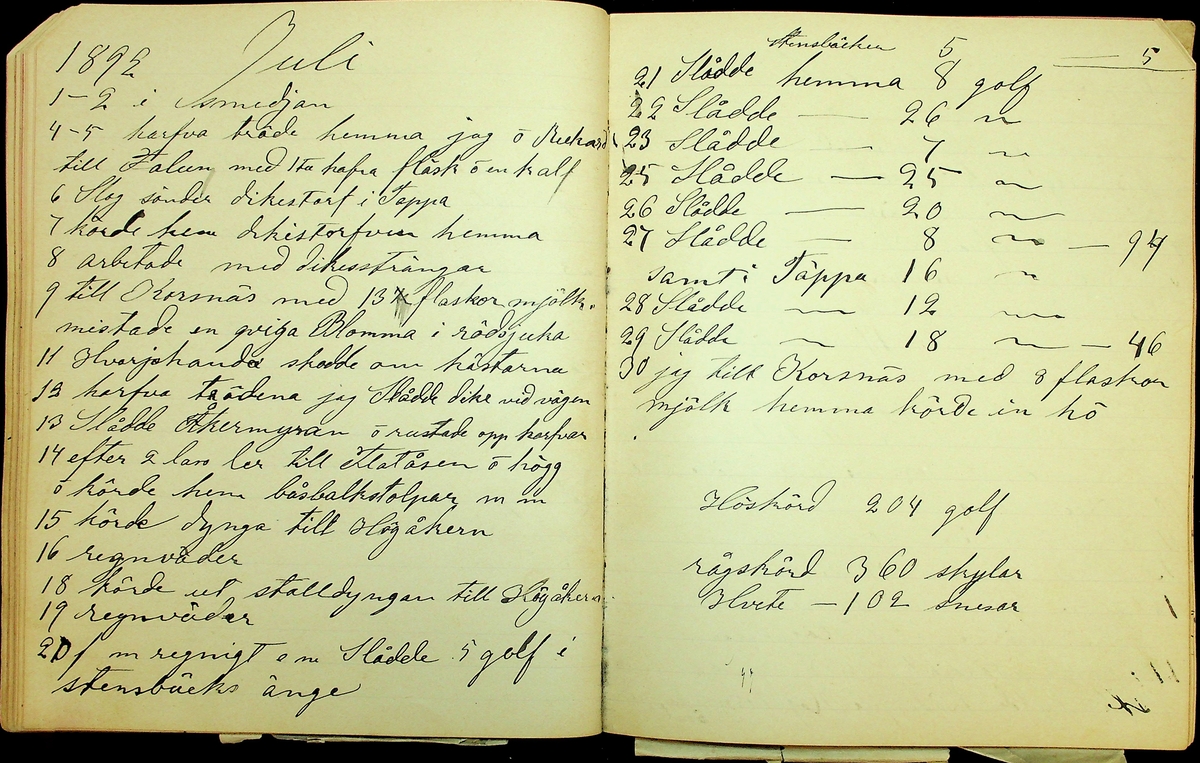 1892 Juli
1-2 i smedjan
4-5 harfva träde hemma jag o Rickard
till Falun med 1 tu hafra fläsk o en kalf
6 Slog sönder dikestorf i Täppa
7 körde hem dikistorfven hemma
8 arbetade med dikessträngar
9 till Korsnäs med 13 flaskor mjölk.
mistade en qviga Blomma i rödsjuka
11 Hvarjehanda skodde om hästarna
12 harfva trädena jag Slådde dike vid vägen
13 Slådde Åkermyran o rustade opp harfvar
14 efter 2 lass ler till Flatåsen o högg
o körde hem båsbalkstolpar m m
15 körde dynga till Högåkern
16 regnväder
18 körde ut stalldyngan till Högåkern
19 regnväder
20 f m regnigt e m Slådde 5 golf i
stensbäcks änge
Stensbäcken 5 — 5
21 Slådde hemma 8 golf
22 Slådde — 26 "
23 Slådde — 7 "
25 Slådde — 25 "
26 Slådde — 20 "
27 Slådde — 8 " — 94
samt i Täppa 16 "
28 Slådde — 12 "
29 Slådde " 18 " — 46
30 jag till Korsnäs med 8 flaskor
mjölk hemma körde in hö
Höskörd 204 golf
rågskörd 360 skylar
Hvete — 102 snesar